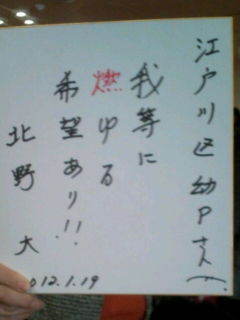 江戸川区幼Pさんへ
我等に
燃ゆる
希望あり!!
北野大
012.1.19